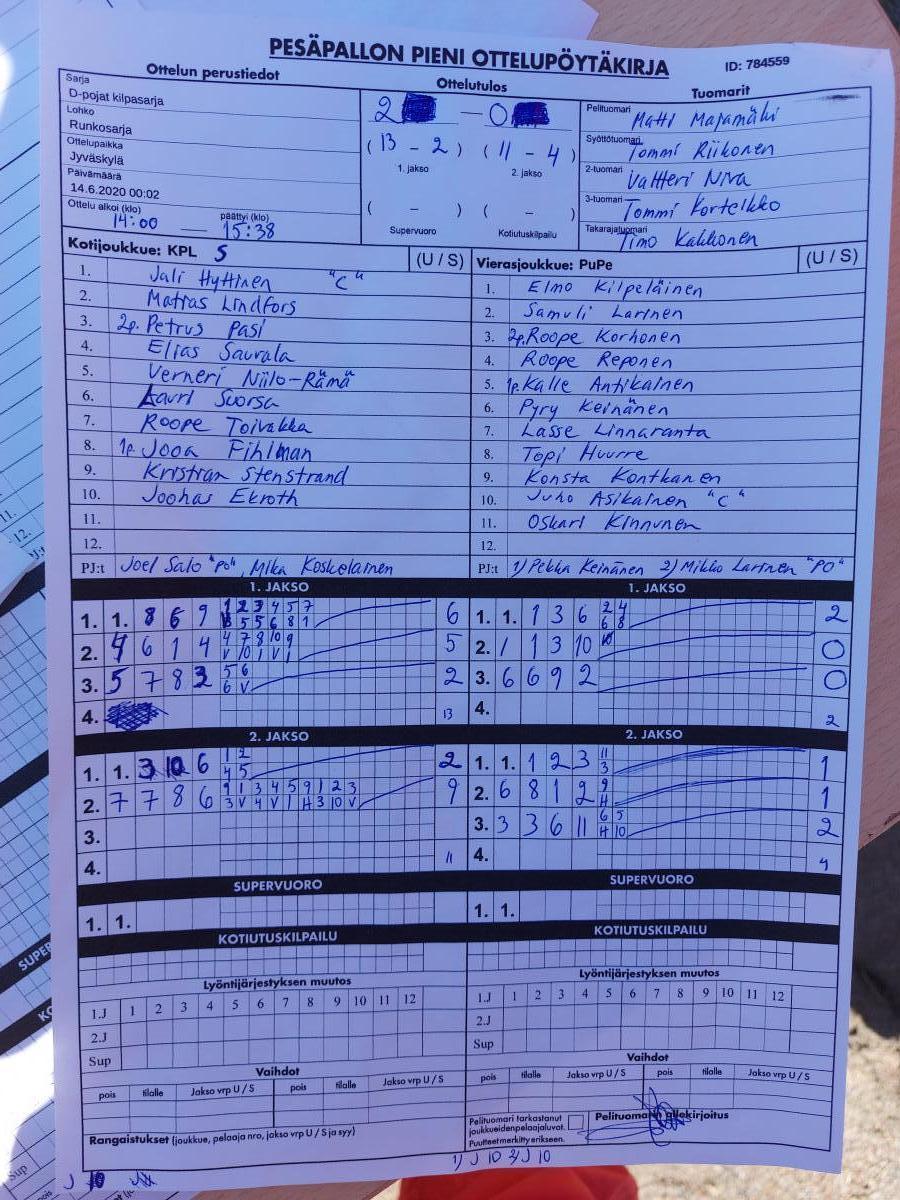 PESÄPALLON PIENI OTTELUPÖYTÄKIRJA
ID: 784559
Ottelun perustiedot
Sarja
D-pojat kilpasarja
Lohko
Runkosarja
Ottelupaikka
Jyväskylä
Päivämäärä
14.6.2020 00:02
Ottelu alkoi (klo) päättyi (klo)
14:00 — 15:38
Ottelutulos
2 — 0
(13 - 2) (11 - 4)
1. jakso 2. jakso
( - ) ( - )
Supervuoro Kotiutuskilpailu
Tuomarit
Pelituomari Matti Majamäki
Syöttötuomari Tommi Riikonen
2-tuomari Valtteri Niva
3-tuomari Tommi Korteikko
Takarajatuomari Timo Kakkonen
Kotijoukkue: KPL S (U / S)
1. Jali Hyttinen "C"
2. Mattas Lindfors
3. 2p. Petrus Pasi
4. Elias Saurala
5. Verneri Niilo-Rämä
6. Lauri Suorsa
7. Roope Toivakka
8. 1p. Jooa Fihlman
9. Kristian Stenstrand
10. Joohas Ekroth
11.
12.
PJ:t Joel Salo "PO", Mika Koskelainen
Vierasjoukkue: PuPe (U / S)
1. Elmo Kilpeläinen
2. Samuli Larinen
3. 2p. Roope Korhonen
4. Roope Reponen
5. 1p. Kalle Antikainen
6. Pyry Keinänen
7. Lasse Linnaranta
8. Topi Huurre
9. Konsta Kontkanen
10. Juho Asikainen "C"
11. Oskari Kinnunen
12.
PJ:t 1) Pekka Keinänen 2) Mikko Larinen "PO"
1. JAKSO
1. 1. 8 6 9 1 2 3 4 5 7 6
5 5 6 8 1
2. 4 6 1 4 4 7 8 10 9 5
V 10 1 V 1
3. 5 7 8 3 5 6 2
6 V
4. 13
1. JAKSO
1. 1. 1 3 6 2 4 2
6 8
2. 1 1 3 10 0
3. 6 6 9 2 0
4. 2
2. JAKSO
1. 1. 3 10 6 1 2 2
4 5
2. 7 7 8 6 9 1 3 4 5 9 1 2 3 9
3 V 4 V 1 H 3 10 V
3.
4. 11
2. JAKSO
1. 1. 1 2 3 11 1
3
2. 6 8 1 2 9 1
H
3. 3 3 6 11 6 5 2
H 10
4. 4
SUPERVUORO
1. 1.
SUPERVUORO
1. 1.
KOTIUTUSKILPAILU
KOTIUTUSKILPAILU
Lyöntijärjestyksen muutos
1.J 1 2 3 4 5 6 7 8 9 10 11 12
2.J
Sup
Lyöntijärjestyksen muutos
1.J 1 2 3 4 5 6 7 8 9 10 11 12
2.J
Sup
Vaihdot
pois tilalle Jakso vrp U / S pois tilalle Jakso vrp U / S
Vaihdot
pois tilalle Jakso vrp U / S pois tilalle Jakso vrp U / S
Rangaistukset (joukkue, pelaaja nro, jakso vrp U / S ja syy)
Pelituomari tarkastanut
joukkueidenpelaajaluvat.
Puutteetmerkitty erikseen.
Pelituomarin allekirjoitus
1) J 10 2) J 10
J 10